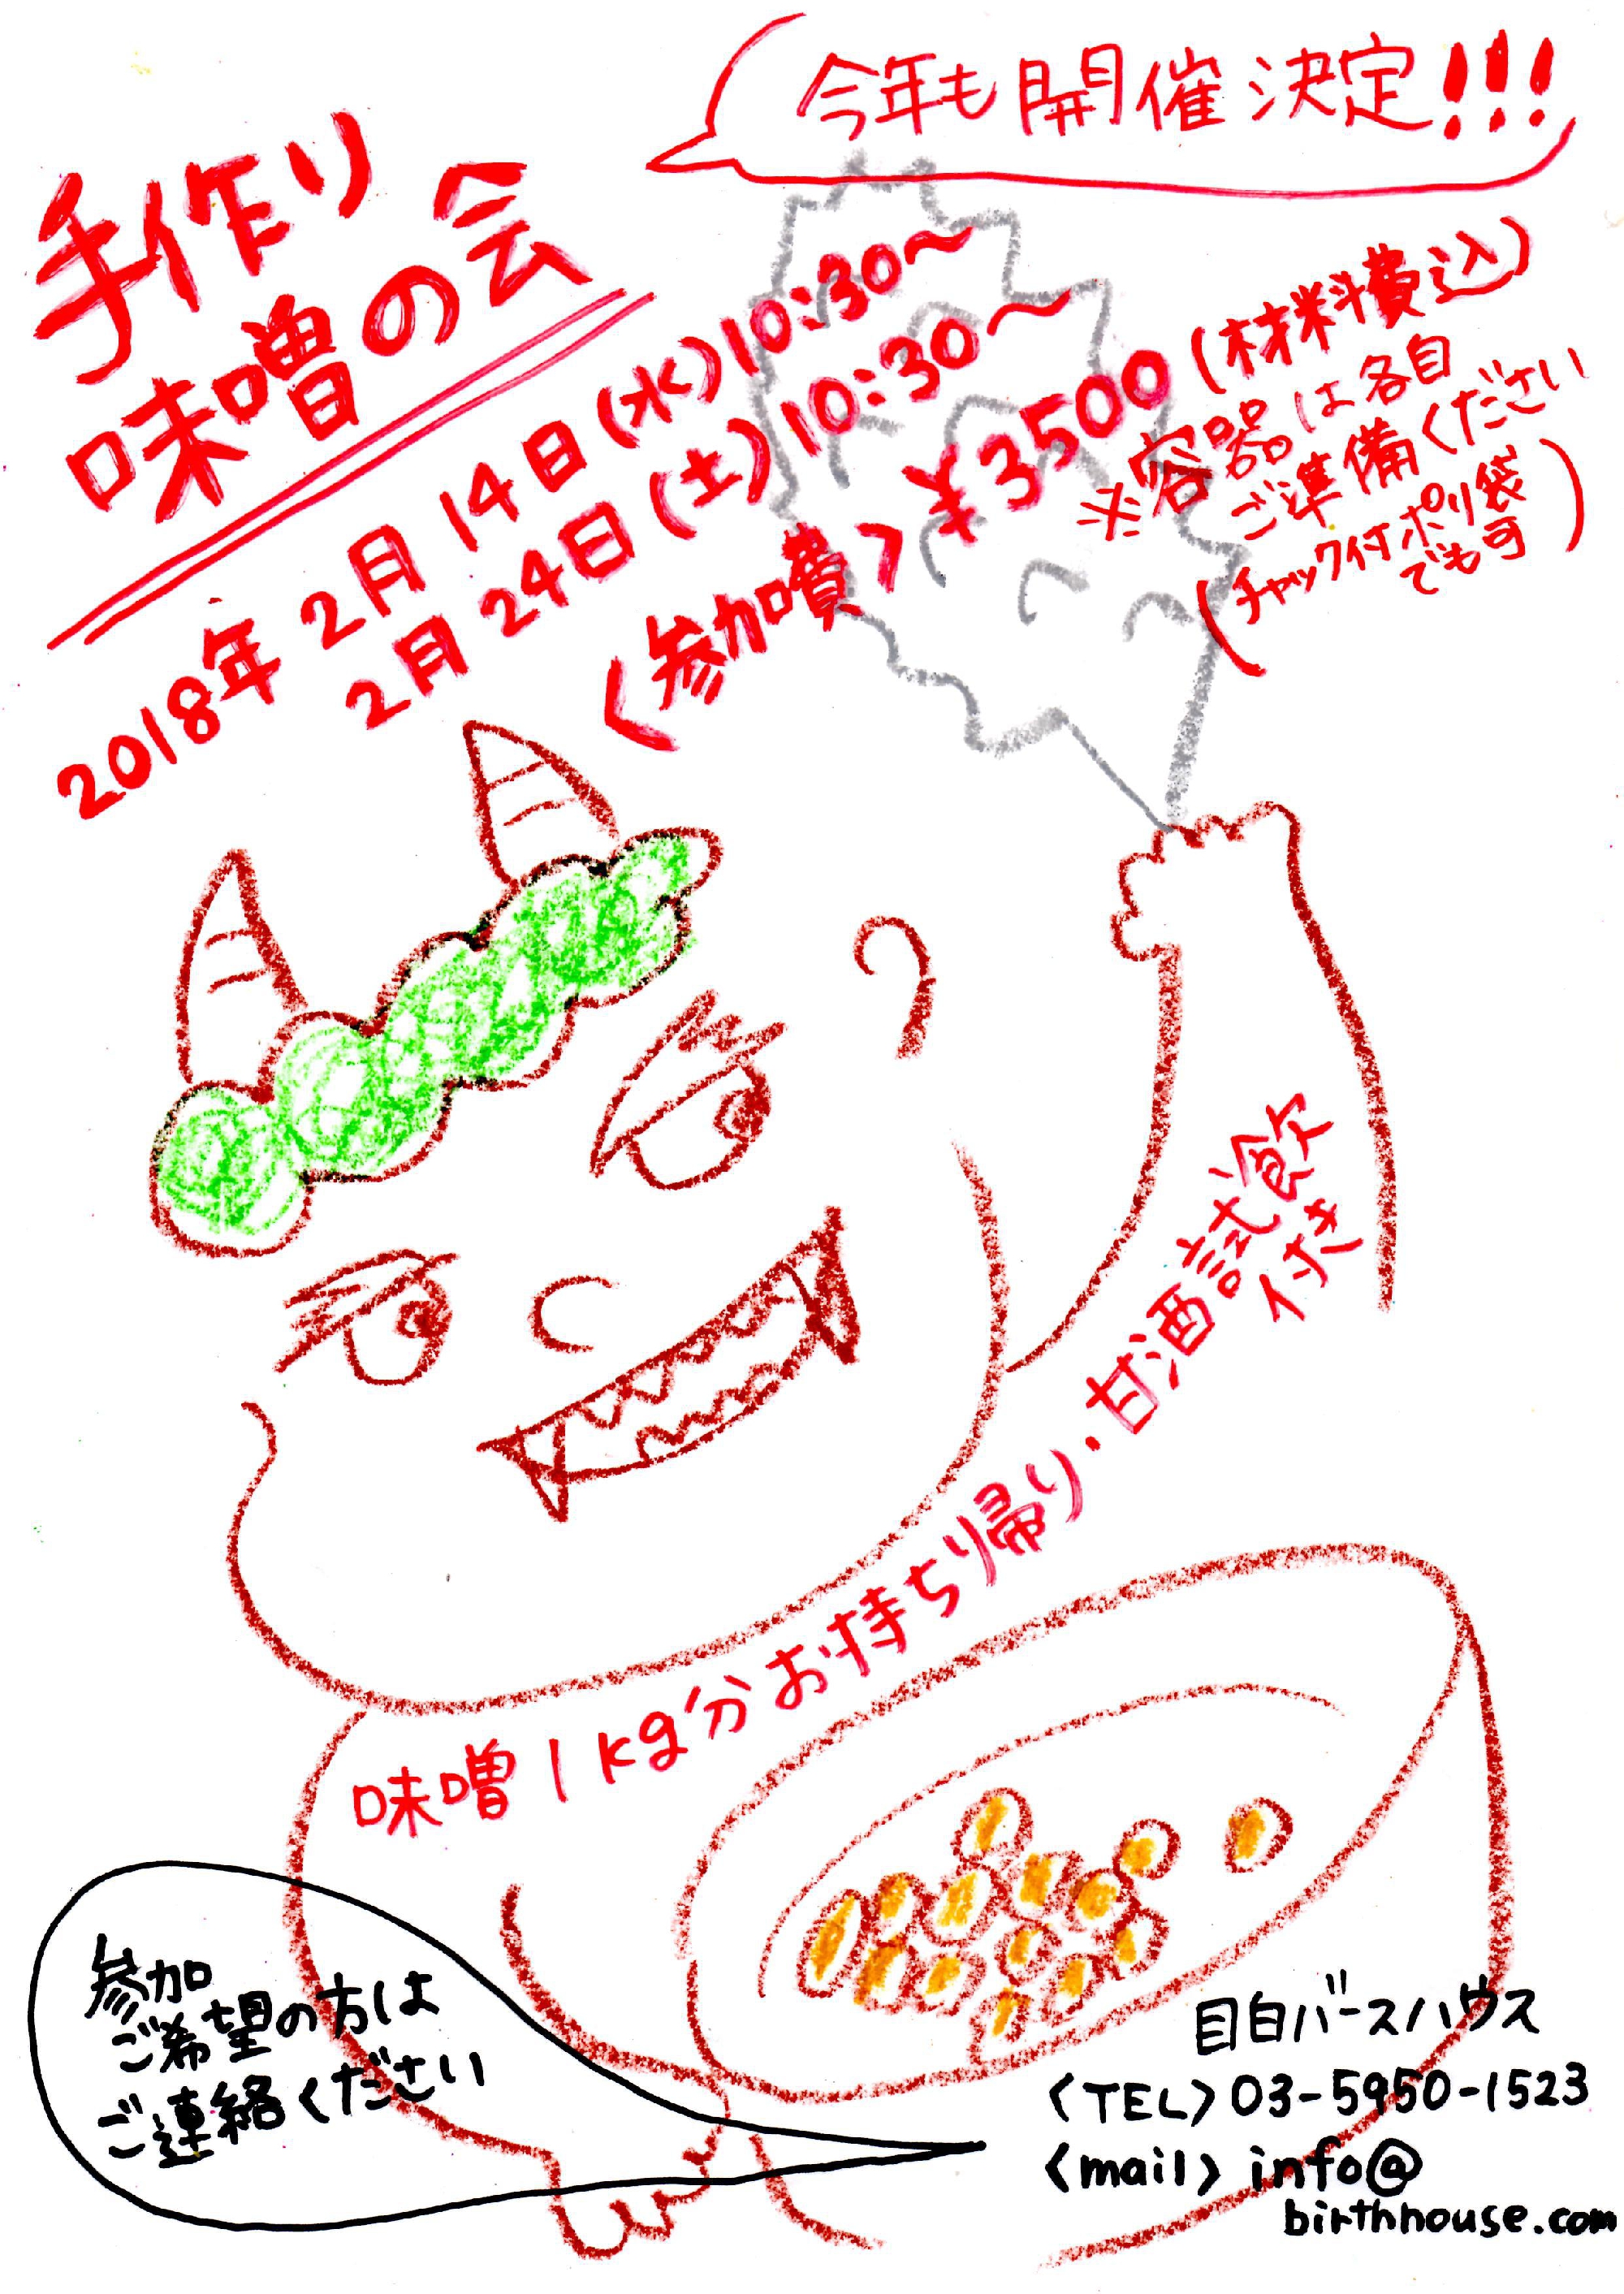 今年も開催決定!!!
手作り
味噌の会
2018年 2月 14日(水)10:30〜
2月 24日(土)10:30〜
〈参加費〉¥3500(材料費込)
※容器は各自
ご準備ください
(チャック付ポリ袋
でも可)
味噌1kg分お持ち帰り・甘酒試飲
付き
参加
ご希望の方は
ご連絡ください
目白バースハウス
〈TEL〉03-5950-1523
〈mail〉info@
birthhouse.com